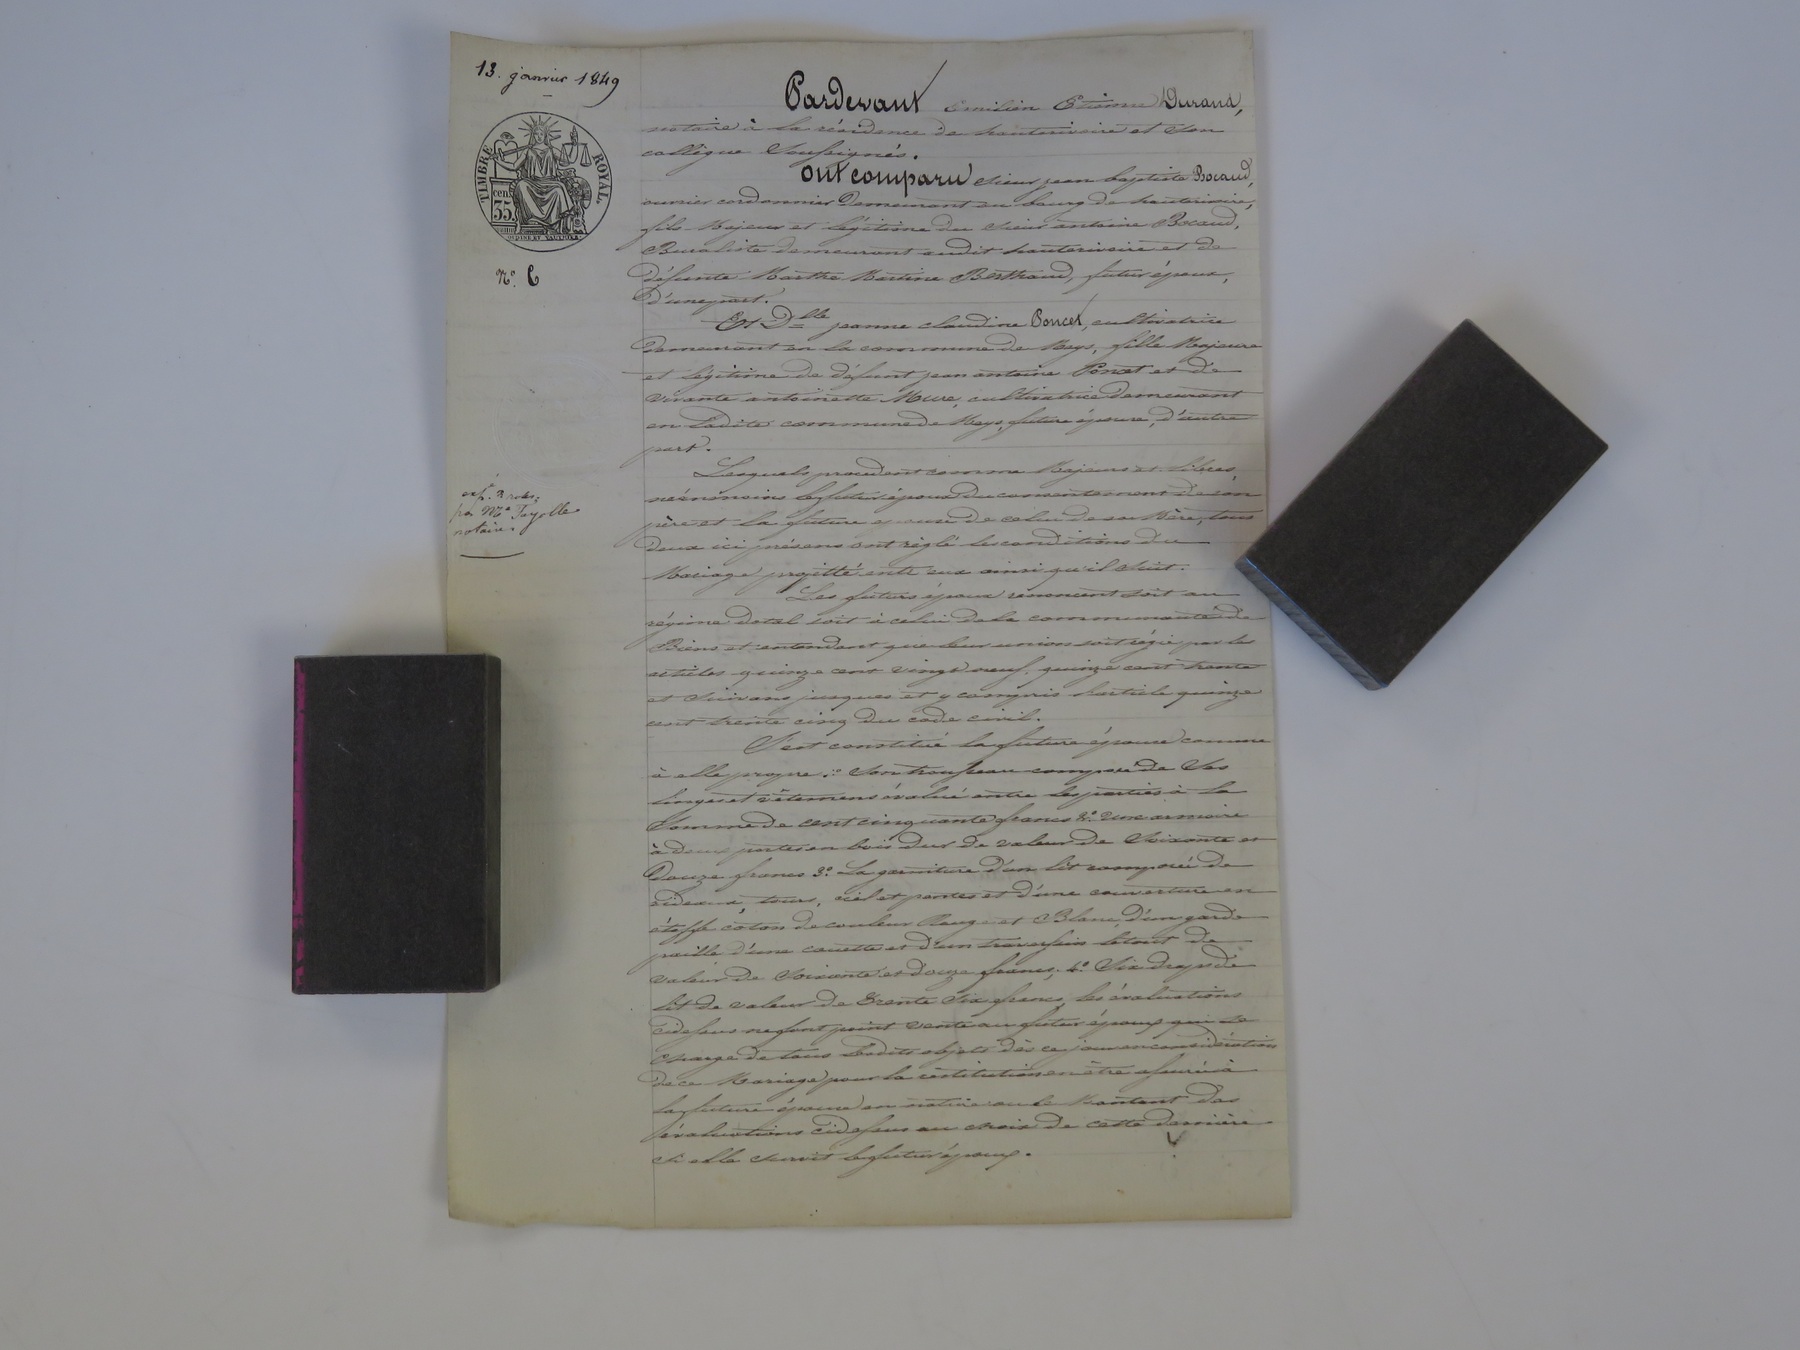 13. janvier 1849
TIMBRE ROYAL
cen. 35
N.° 6
exp. 2 roles;
par Me Fayolle
notaire.
Pardevant Emilien Etienne Durand,
notaire à la résidence de hauterivoire et son
collègue Soussignés.
ont comparu Sieur jean baptiste Bocaud,
ouvrier cordonnier Demeurant au bourg de hauterivoire,
fils Majeur et légitime du Sieur antoine Bocaud,
Buraliste demeurant audit hauterivoire et de
défunte Marthe Martine Berthaud, futur époux,
D'une part.
Et Dlle jeanne claudine Poncet, cultivatrice
Demeurant en la commune de Meys, fille Majeure
et légitime de défunt jean antoine Poncet et de
vivante antoinette Mure, cultivatrice Demeurant
en Ladite commune de Meys, future épouse, D'autre
part.
Lesquels procedent comme Majeurs et libres
néenmoins le futur époux du consentement de son
père et la future epouse de celui de sa Mère, tous
deux ici présens ont réglé les conditions du
Mariage projetté entr eux ainsi qu'il suit.
Les futurs époux renoncent soit au
régime dotal soit à celui de la communauté de
Biens et entendent que leur union soit régie par les
articles quinze cent vingt neuf, quinze cent trente
et Suivans jusques et y compris l'article quinze
cent trente cinq du code civil.
S'est constitué la future épouse comme
à elle propre: 1° Son trousseau composé de Ses
linges et vêtemens évalué entre les parties à la
Somme de cent cinquante francs 2.° Une armoire
à deux portes en bois dur de valeur de Soixante et
Douze francs 3.° La garniture d'un lit composée de
rideaux, tours, ciel et pentes et d'une couverture en
étoffe coton de couleur Rouge et Blanc, D'un garde
paille d'une couette et d'un traversin le tout de
valeur de Soixante et douze francs; 4.° Six draps de
lit de valeur de Trente Six francs, les évaluations
cidessus ne font point vente au futur époux qui se
charge de tous Lesdits objets dès ce jour en considération
de ce Mariage pour la restitution en être assurée à
la future épouse en nature ou le Montant des
évaluations cidessus au choix de cette dernière
Si elle survit le futur époux.